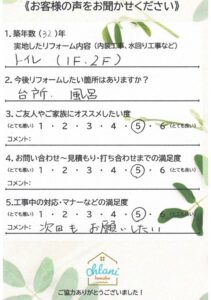 《お客様の声をお聞かせください》
1. 築年数 (32)年
実施したリフォーム内容 (内装工事、水回り工事など)
トイレ (1F.2F)
2. 今後リフォームしたい箇所はありますか?
台所、風呂
3. ご友人やご家族にオススメしたい度
(とても悪い) 1・2・3・4・5・6 (とても良い)
コメント:
4. お問い合わせ〜見積もり・打ち合わせまでの満足度
(とても悪い) 1・2・3・4・5・6 (とても良い)
コメント:
5. 工事中の対応・マナーなどの満足度
(とても悪い) 1・2・3・4・5・6 (とても良い)
コメント: 次回も お願いしたい
ohlani
ご協力ありがとうございました!